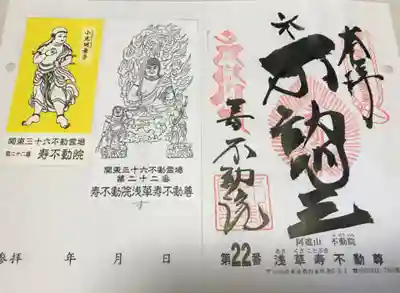 小光明童子
関東三十六不動霊場
第二十二番 寿不動院
関東三十六不動霊場
第二十二番
寿不動院浅草寿不動尊
奉拝
不動明王
寿不動院
阿遮山 不動院
第22番 浅草寿不動尊
参拝 年 月 日